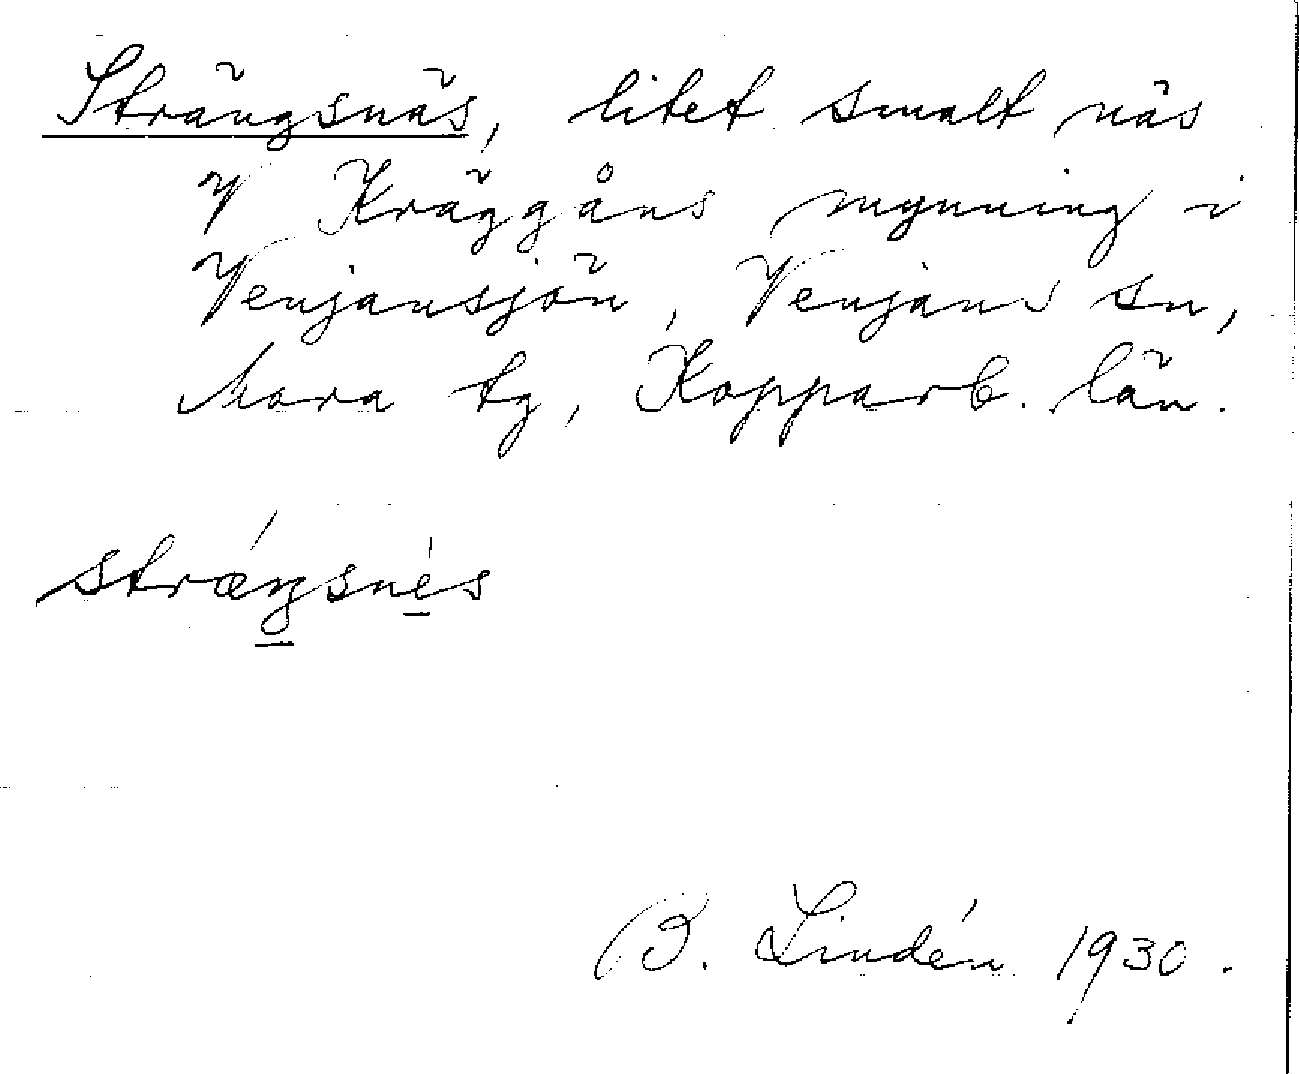 Strängsnäs, litet smalt näs
V Kräggåns mynning i
Venjansjön, Venjans sn,
Mora tg, Kopparb. län.
strǽŋsnés
B. Lindén 1930.